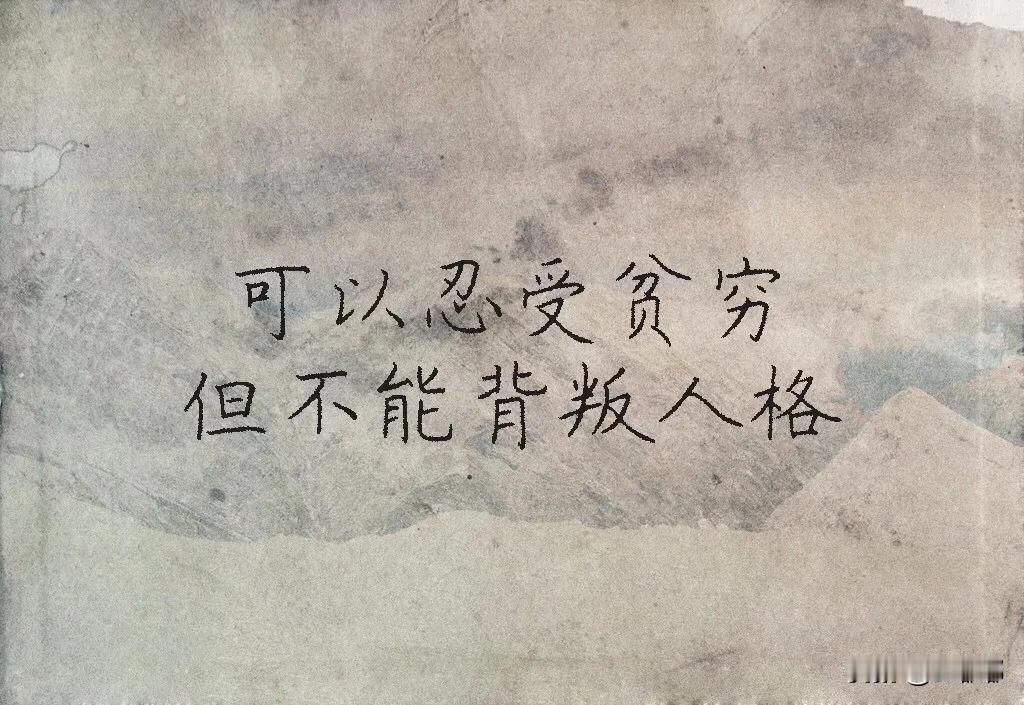 可以忍受贫穷
但不能背叛人格